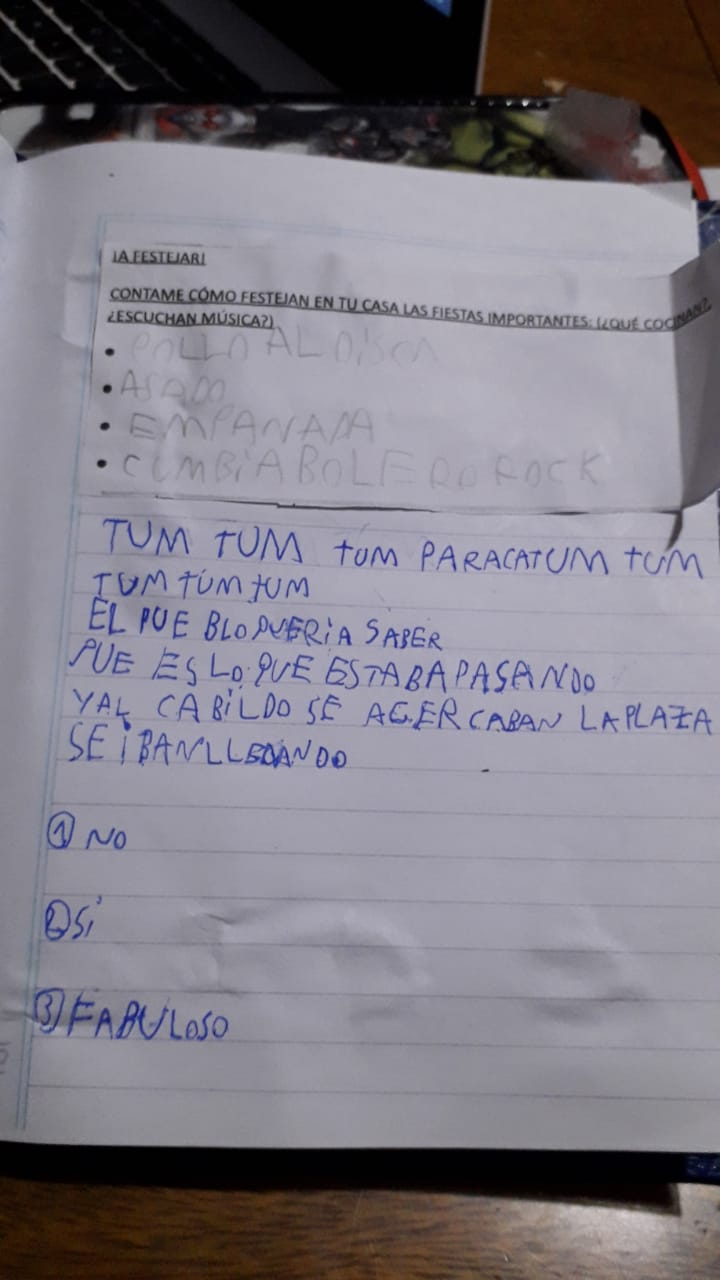 ¡A FESTEJAR!
CONTAME CÓMO FESTEJAN EN TU CASA LAS FIESTAS IMPORTANTES: (¿QUÉ COCINAN?,
¿ESCUCHAN MÚSICA?)
• POLLO AL DISCO
• ASADO
• EMPANADA
• CUMBiA BOLERO ROCK
TUM TUM tUM PARACATUM tUM
TUM TUM tUM
EL PUE BLO PUERiA SABER
PUE ES LO QUE ESTABA PASANDO
Y AL CABiLDO SE ACERCABAN LA PLAZA
SE iBAN LLENANDO
① NO
② Si
③ FABULOSO